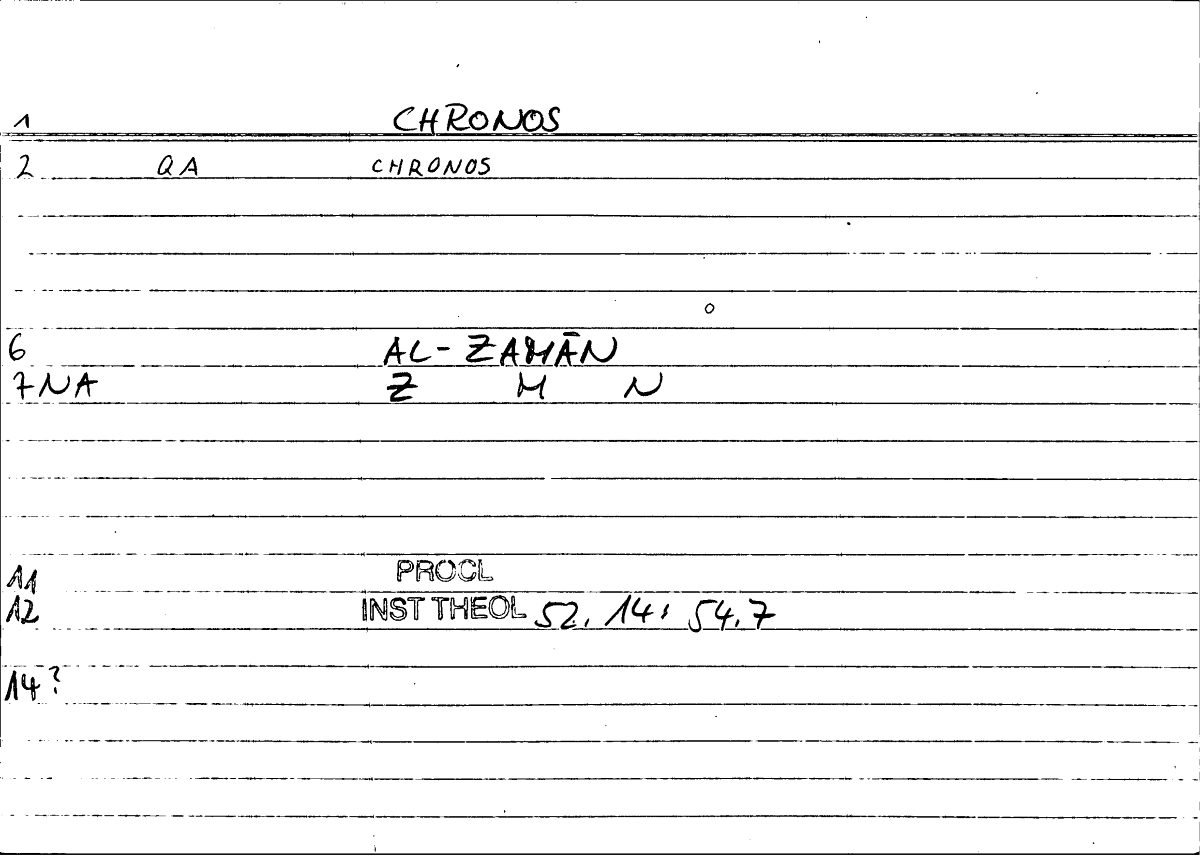 1 CHRONOS
2 QA CHRONOS
6 AL-ZAMĀN
7 NA Z M N
11 PROCL
12 INST THEOL 52, 14; 54.7
14?